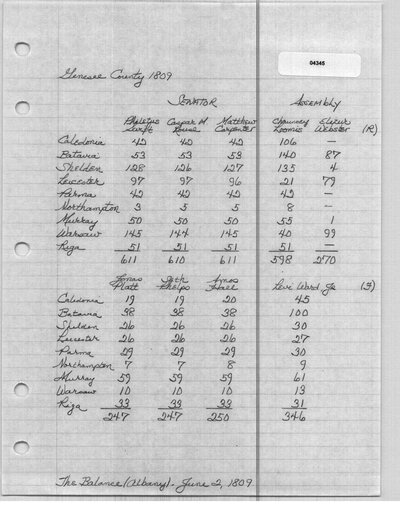 04345
Genesee County 1809
SENATOR ASSEMBLY
Philetus Caspar M Matthew Chauncey Elizur
Swift Rouse Carpenter Loomis Webster (R)
Caledonia 42 42 42 106 —
Batavia 53 53 53 140 87
Sheldon 128 126 127 135 4
Leicester 97 97 96 21 79
Parma 42 42 42 42 —
Northampton 3 5 5 8 —
Murray 50 50 50 55 1
Warsaw 145 144 145 40 99
Riga 51 51 51 51 —
611 610 611 598 270
Jonas Seth Amos
Platt Phelps Hall Levi Ward Jr (F)
Caledonia 19 19 20 45
Batavia 38 38 38 100
Sheldon 26 26 26 30
Leicester 26 26 26 27
Parma 29 29 29 30
Northampton 7 7 8 9
Murray 59 59 59 61
Warsaw 10 10 10 13
Riga 33 33 33 31
247 247 250 346
The Balance (Albany). June 2, 1809